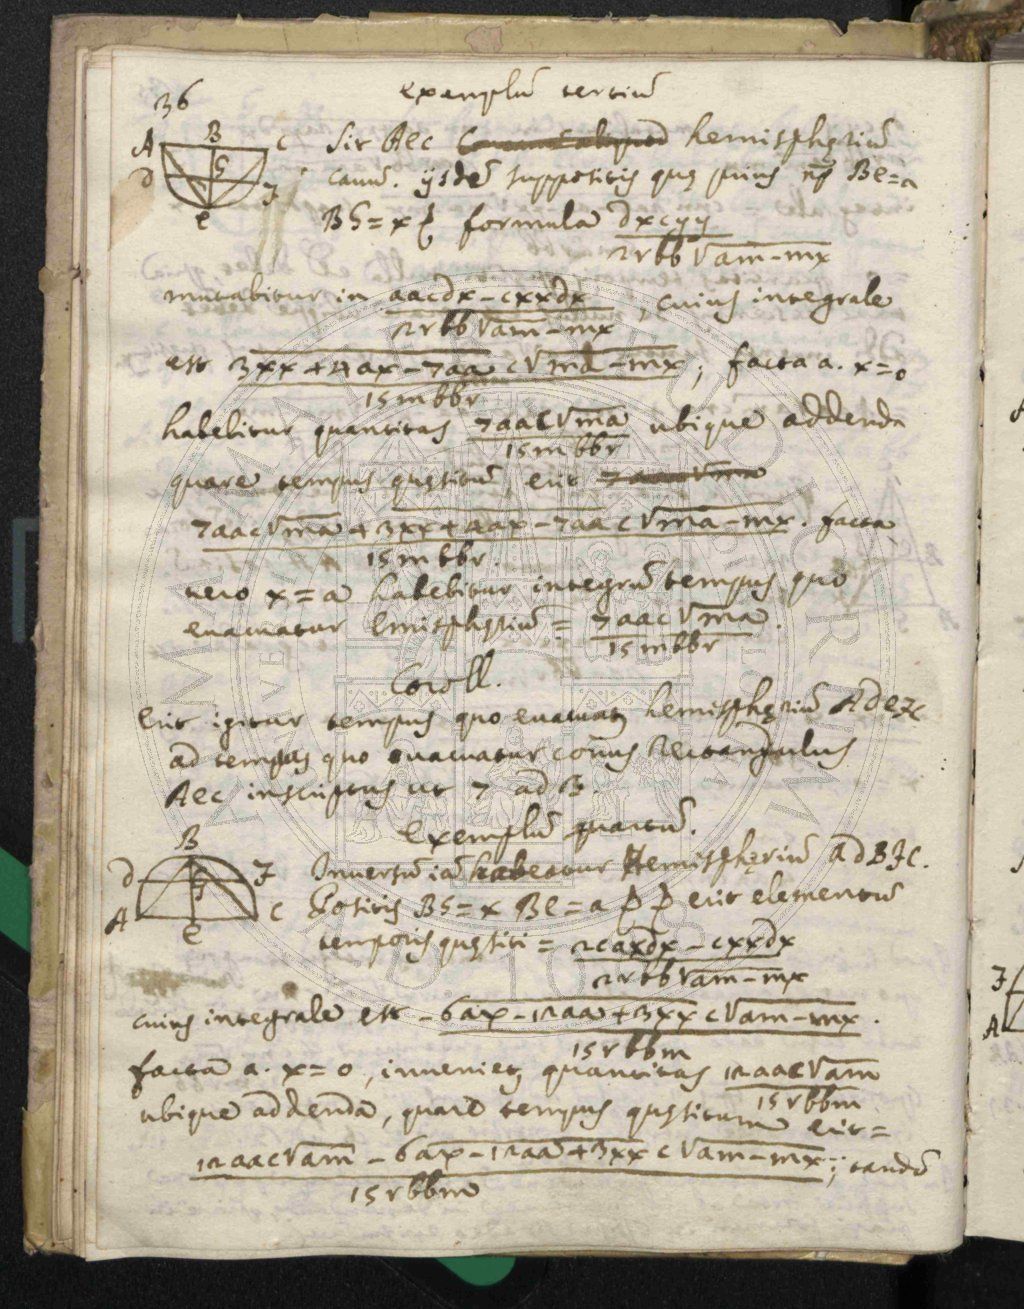 36
Exemplũ tertiũ
A B C Sit AEC Hemisphęriũ
D G F cauũ. ijsdẽ suppositis quę prius nẽ BE=a
E BG=x & formula dxcyy / 2rbb√am-mx
mutabitur in aacdx-cxxdx / 2rbb√am-mx, cuius integrale
est 3xx+4ax-7aa c√ma-mx / 15mbbr; facta a. x=0
habebitur quantitas 7aac√ma / 15mbbr ubique addenda
quare tempus quęsitũ erit
7aac√ma+3xx+4ax-7aa c√ma-mx / 15mbbr. facta
vero x=a habebitur integrũ tempus, quo
euacuatur Emisphęriũ = 7aac√ma / 15mbbr.
Coroll.
Erit igitur tempus quo euacuat hemisphęriũ ADEFC
ad tempus quo euacuatur conus Rectangulus
AEC inscriptus ut 7 ad 8.
Exemplũ quartũ.
B D G F Inuersũ iã habeatur Hemisphęriũ ADBFC.
A E C Positis BG=x BE=a erit elementũ
temporis quęsiti = 2caxdx-cxxdx / 2rbb√am-mx
cuius integrale est -6ax-12aa+3xx c√am-mx / 15rbbm.
facta a. x=0, inueniet quantitas 12aac√am / 15rbbm
ubique addenda, quare tempus quęsitum erit=
12aac√am-6ax-12aa+3xx c√am-mx / 15rbbm; tandẽ